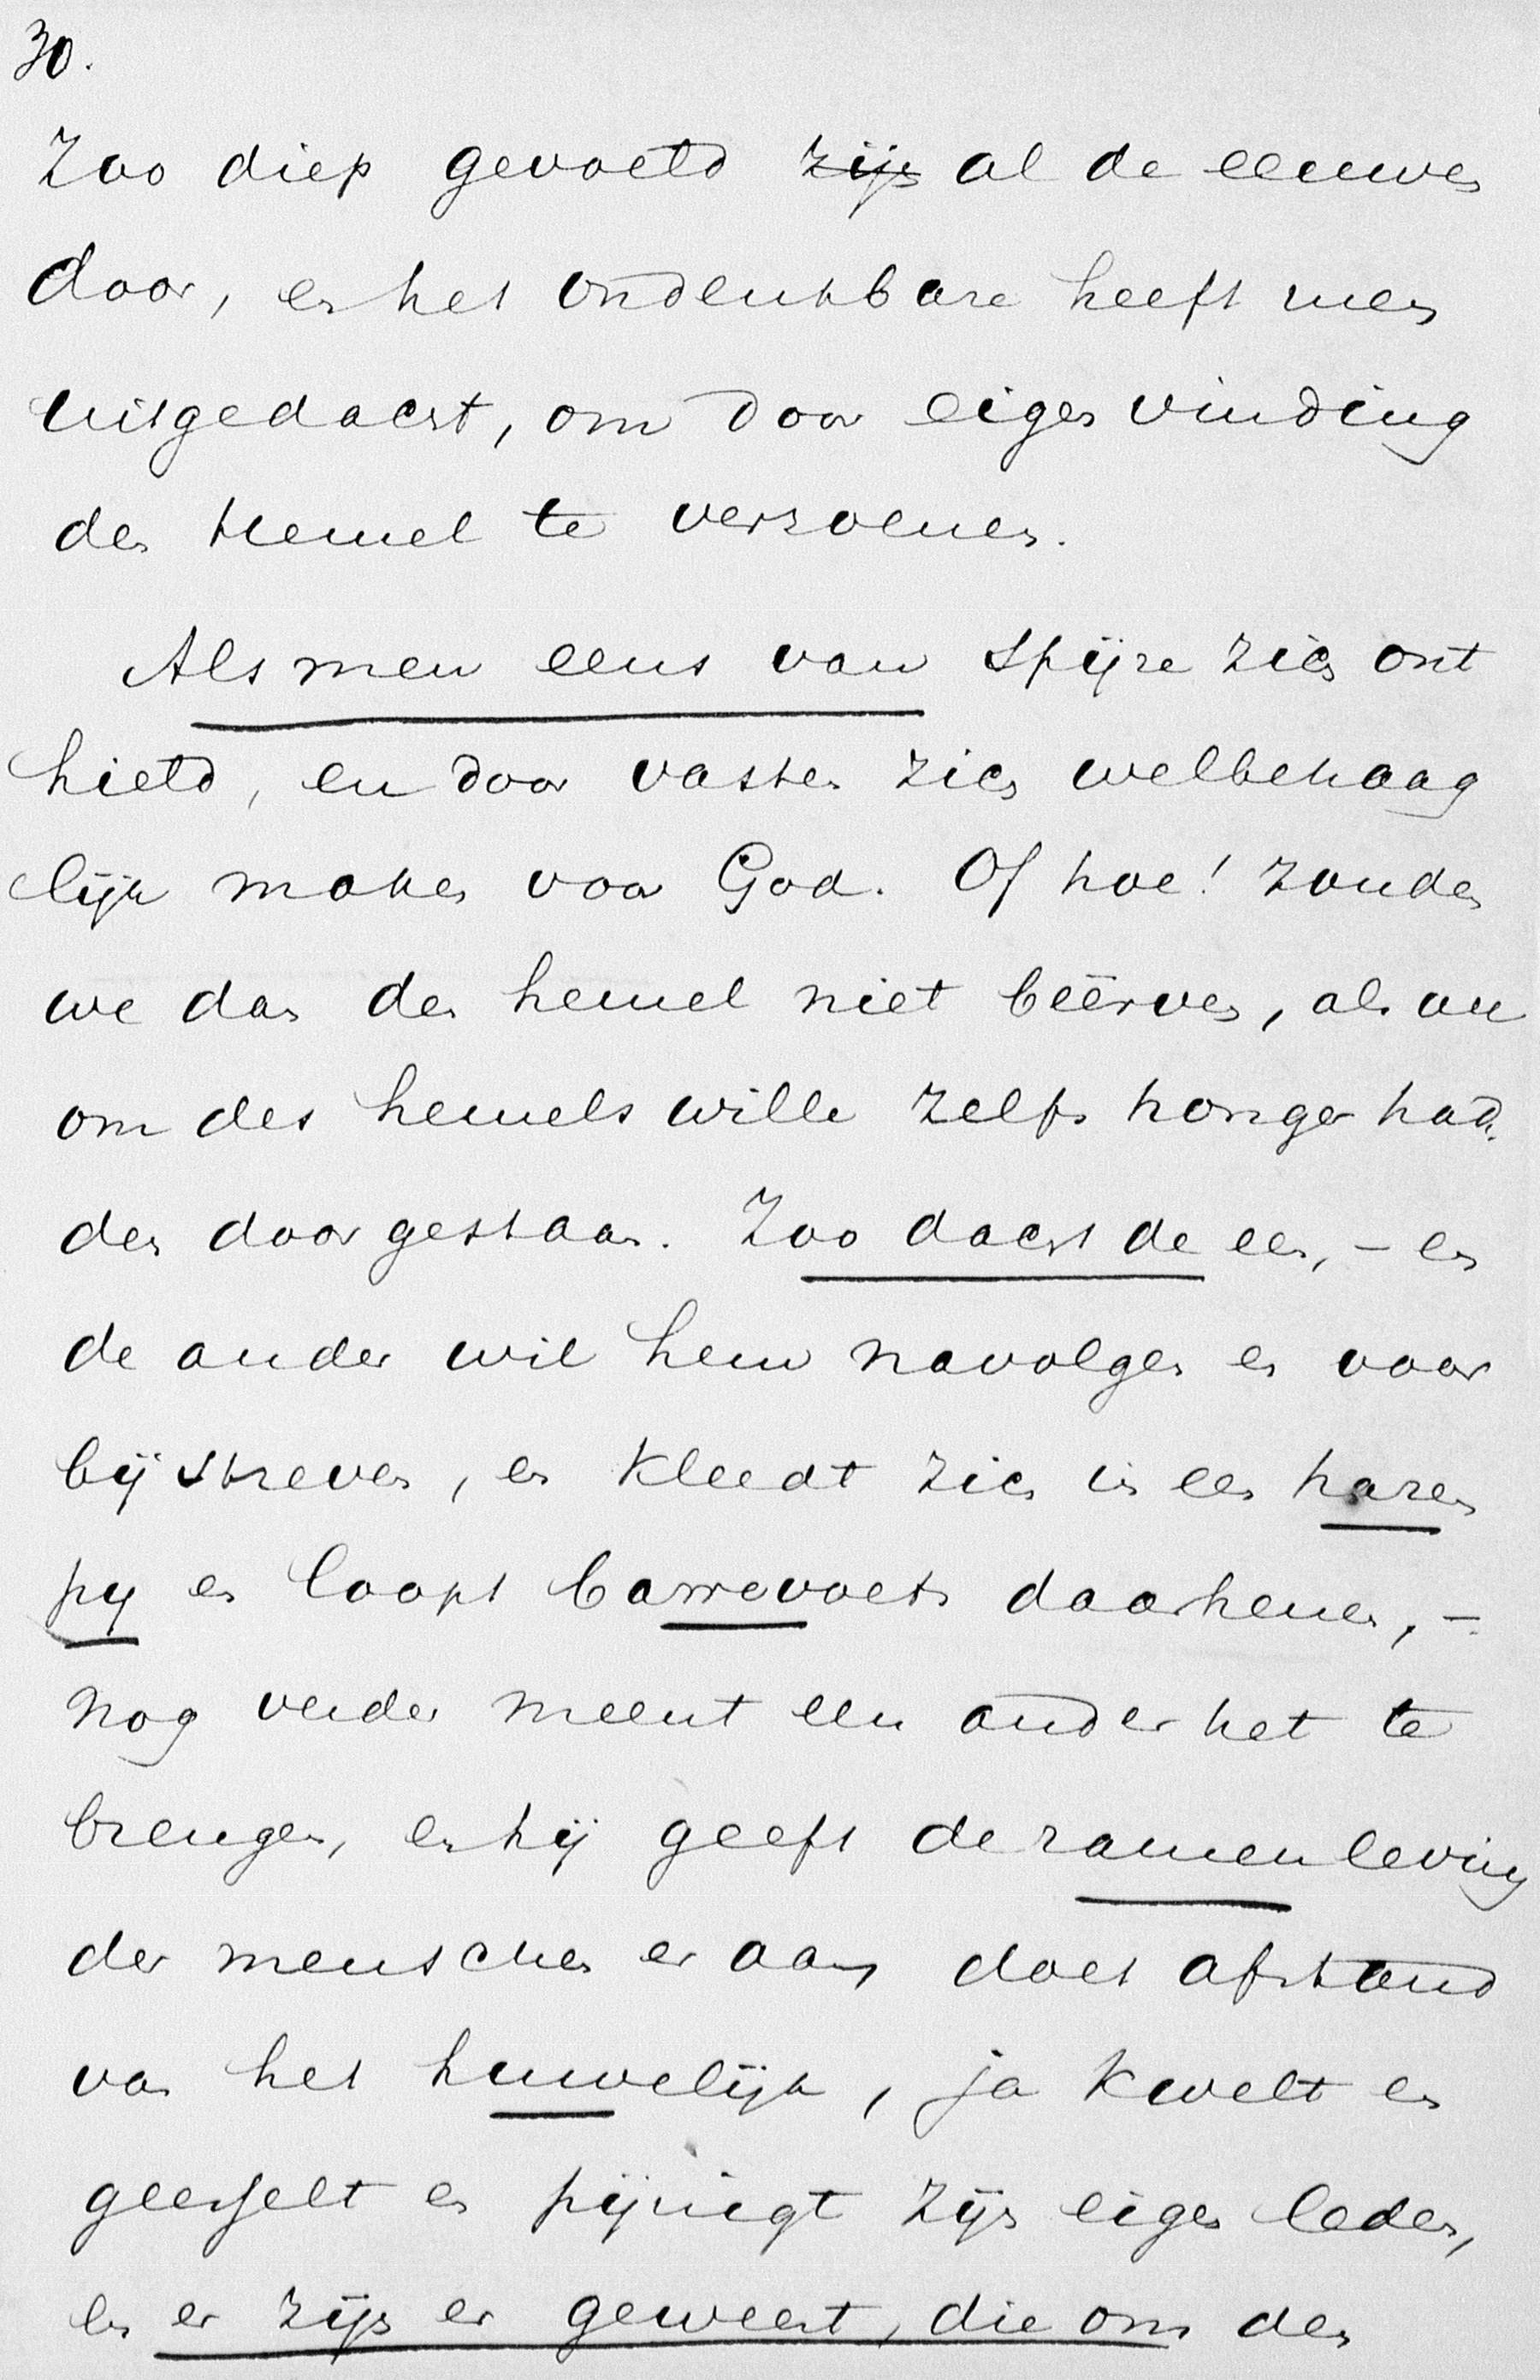 30.
Zoo diep gevoeld zijn al de eeuwen
door, en het ondenkbare heeft men
uitgedacht, om door eigen vinding
den Hemel te verzoenen.
Als men eens van spijze zich ont
hield, en door vasten zich welbehaag
lijk maken voor God. Of hoe! zouden
we dan den hemel niet beërven, als we
om des hemels wille zelfs honger had,
den doorgestaan. Zoo dacht de een, – en
de ander wil hem navolgen en voor
bij streven, en kleedt zich in een haren
py en loopt barrevoets daarhenen, –
nog verder meent een ander het te
brengen, en hij geeft de zamenleving
der menschen er aan, doet afstand
van het huwelijk, ja kwelt en
geesselt en pijnigt zijn eigen leden,
en er zijn er geweest, die om den